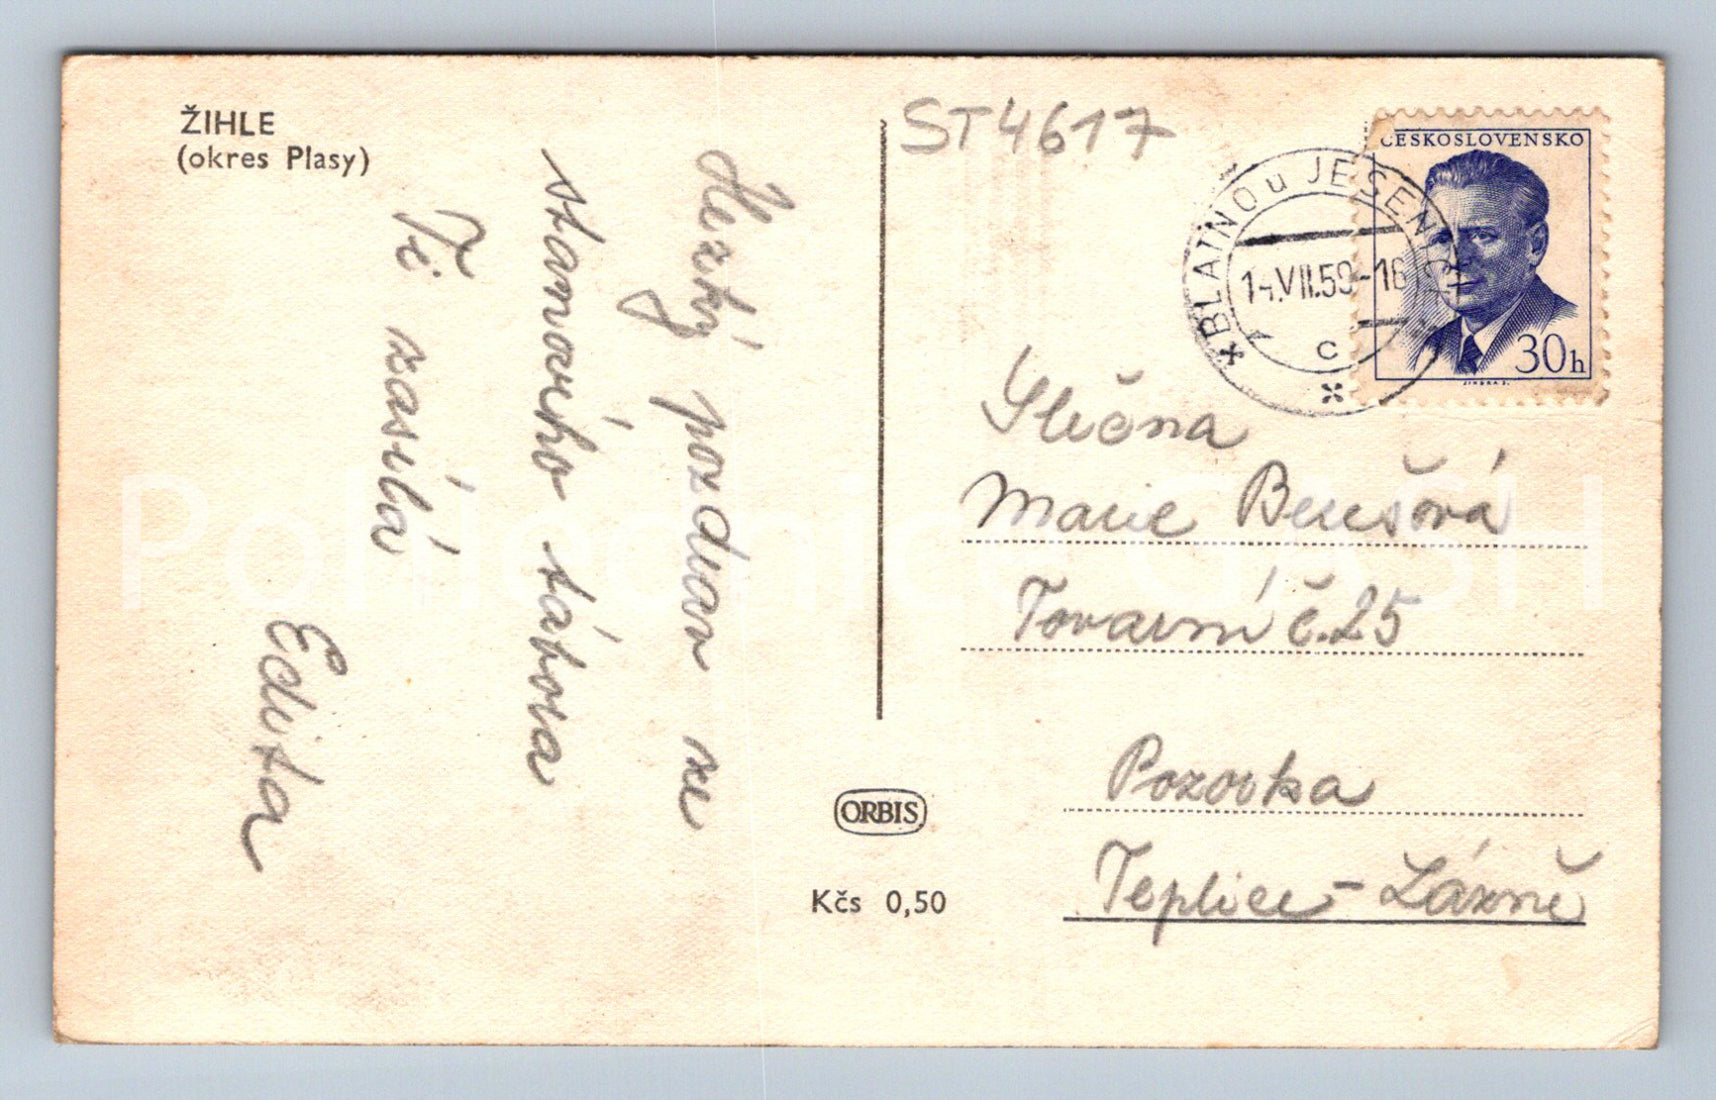 ŽIHLE
(okres Plasy)
Hezký pozdrav ze
stanového tábora
Ti zasílá
Edita
ST4617
ČESKOSLOVENSKO
30h
BLATNO u JESENICE
14.VII.59-16
c
Slečna
Marie Benešová
Tovární č.25
Pozorka
Teplice-Lázně
ORBIS
Kčs 0,50